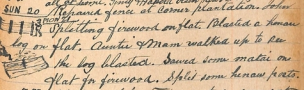 SUN 20 Repaired fence at Corner Plantation. John
Splitting firewood on flat. Blasted a hinau
log on flat. Auntie & Mam walked up to see
the log blasted. Sawed some matai on
flat for firewood. Split some hinau posts.